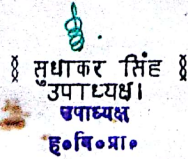 सुधाकर सिंह
उपाध्यक्ष।
उपाध्यक्ष
ह०वि०प्रा०